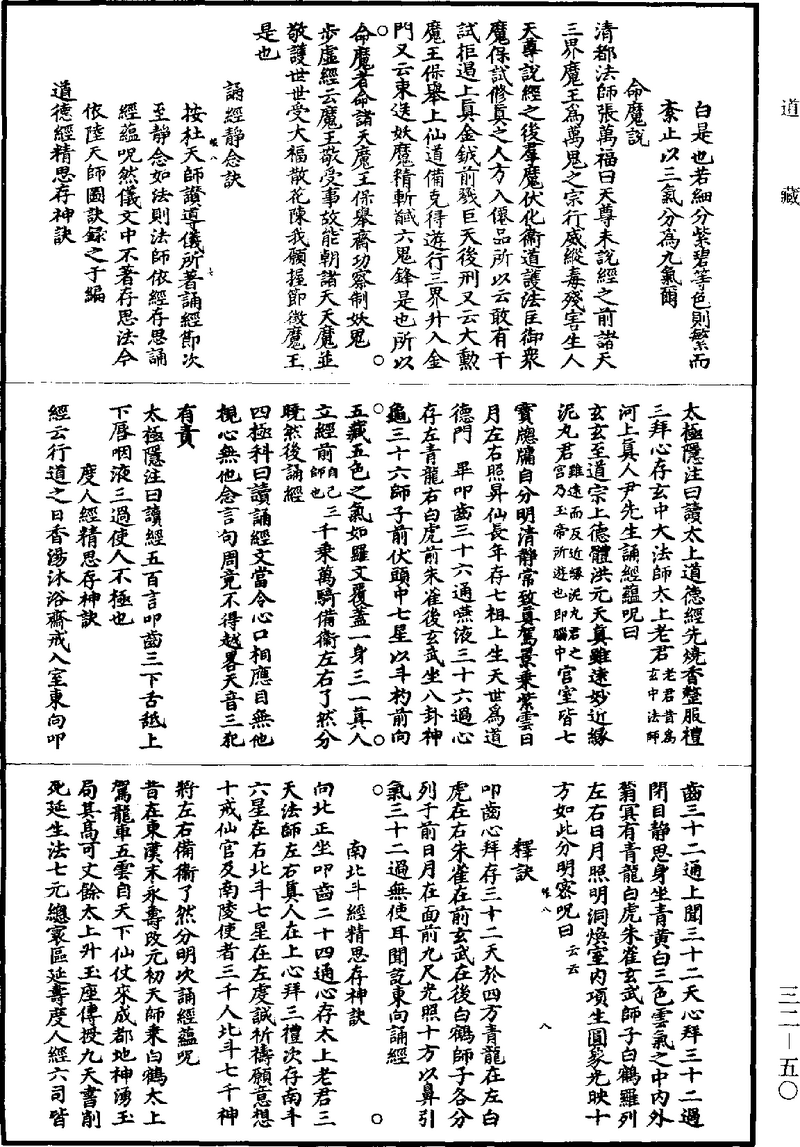 道藏
白是也若細分紫碧等色則繁而
紊止以三氣分為九氣爾
命魔說
清都法師張萬福曰天尊未說經之前諸天
三界魔王為萬鬼之宗行威縱毒殘害生人
天尊說經之後羣魔伏化衛道護法臣御衆
魔保試修真之人方入僊品所以云敢有干
試拒遏上真金鉞前戮巨天後刑又云大勳
魔王保舉上仙道備克得遊行三界升入金
門又云束送妖魔精斬馘六鬼鋒是也所以
命魔者命諸天魔王保舉齋功察制妖鬼
步虛經云魔王敬受事故能朝諸天天魔並
敬護世世受大福散花陳我願握節徵魔王
是也
誦經靜念訣
按杜天師讚導儀所著誦經節次
至靜念如法則法師依經存思誦
經蘊呪然儀文中不著存思法今
依陸天師圖訣錄之于編
道德經精思存神訣
太極隱注曰讀太上道德經先燒香整服禮
三拜心存玄中大法師太上老君老君昔為玄中法師
河上真人尹先生誦經蘊呪曰
玄玄至道宗上德體洪元天真雖遠妙近緣
泥丸君雖遠而反近緣泥丸君之宮乃玉帝所遊也即腦中宮室皆七
寶牕牖自分明清靜常致真駕景乘紫雲日
月左右照昇仙長年存七祖上生天世為道
德門 畢叩齒三十六通嚥液三十六過心
存左青龍右白虎前朱雀後玄武坐八卦神
龜三十六師子前伏頭巾七星以斗杓前向
五藏五色之氣如羅文覆蓋一身三一真人
立經前自己師也三千乘萬騎備衛左右了然分
曉然後誦經
四極科曰讀誦經文當令心口相應目無他
視心無他念言句周竟不得越畧天音三犯
有責
太極隱注曰讀經五百言叩齒三下舌舐上
下唇咽液三過使人不極也
度人經精思存神訣
經云行道之日香湯沐浴齋戒入室東向叩
齒三十二通上聞三十二天心拜三十二過
閉目靜思身坐青黃白三色雲氣之中內外
蓊冥有青龍白虎朱雀玄武師子白鶴羅列
左右日月照明洞煥室內項生圓象光映十
方如此分明密呪曰云云
釋訣
叩齒心拜存三十二天於四方青龍在左白
虎在右朱雀在前玄武在後白鶴師子各分
列于前日月在面前九尺光照十方以鼻引
氣三十二過無使耳聞訖東向誦經
南北斗經精思存神訣
向北正坐叩齒二十四通心存太上老君三
天法師左右真人在上心拜三禮次存南斗
六星在右北斗七星在左虔誠祈禱願意想
十戒仙官及南陵使者三千人北斗七千神
將左右備衛了然分明次誦經蘊呪
昔在東漢末永壽改元初天師乘白鶴太上
駕龍車五雲自天下仙仗來成都地神湧玉
局其高可丈餘太上升玉座傳授九天書削
死延生法七元總寰區延壽度人經六司皆
三二—五〇